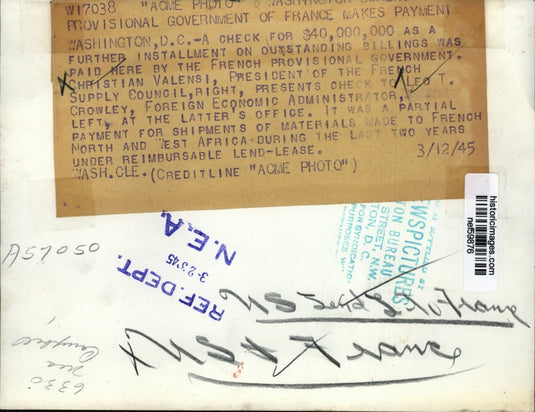 W17038 "ACME PHOTO" WASHINGTON
PROVISIONAL GOVERNMENT OF FRANCE MAKES PAYMENT
WASHINGTON,D.C.-A CHECK FOR $40,000,000 AS A
FURTHER INSTALLMENT ON OUTSTANDING BILLINGS WAS
PAID HERE BY THE FRENCH PROVISIONAL GOVERNMENT.
CHRISTIAN VALENSI, PRESIDENT OF THE FRENCH
SUPPLY COUNCIL,RIGHT, PRESENTS CHECK TO LEO T.
CROWLEY, FOREIGN ECONOMIC ADMINISTRATOR,
LEFT, AT THE LATTER'S OFFICE. IT WAS A PARTIAL
PAYMENT FOR SHIPMENTS OF MATERIALS MADE TO FRENCH
NORTH AND WEST AFRICA DURING THE LAST TWO YEARS
UNDER REIMBURSABLE LEND-LEASE.
WASH.CLE.(CREDITLINE "ACME PHOTO") 3/12/45
historicimages.com
nef59876
WSPICTURES
ON BUREAU
STREET, N.W.
TON, D. C.
FOR SYNDICATIO
PURPOSES
N.E.A.
REF. DEPT.
3-23'45
A57050
US to France
US & France
6330